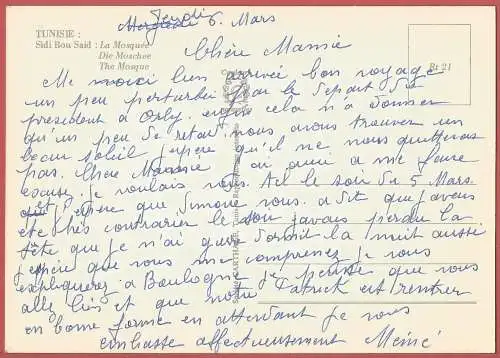 Jeudi
Mercredi 6. Mars
TUNISIE :
Sidi Bou Said : La Mosquée
Die Moschee
The Mosque
Rt 21
Chère Mamie
Me voici bien arrivée bon voyage
un peu perturbé par le depart du
president a Orly. enfin cela n'a donner
qu'un peu de retard. nous avons trouver un
beau soleil j'espère qu'il ne nous quitteras
pas. Chère Mamie j'ai aussi a me faire
excuse. je voulais vous Tel le soir du 5 Mars.
j'espère que Simone vous a dit que j'avais
ete très contrarier le soir j'avais perdu la
tête que je n'ai guere dormit la nuit aussi
j'espère que vous me comprenez je vous
expliquerez a Boulogne j'espère que vous
allez bien et que notre Patrick est rentrer
en bonne forme en attendant je vous
embrasse affectueusement Mémé